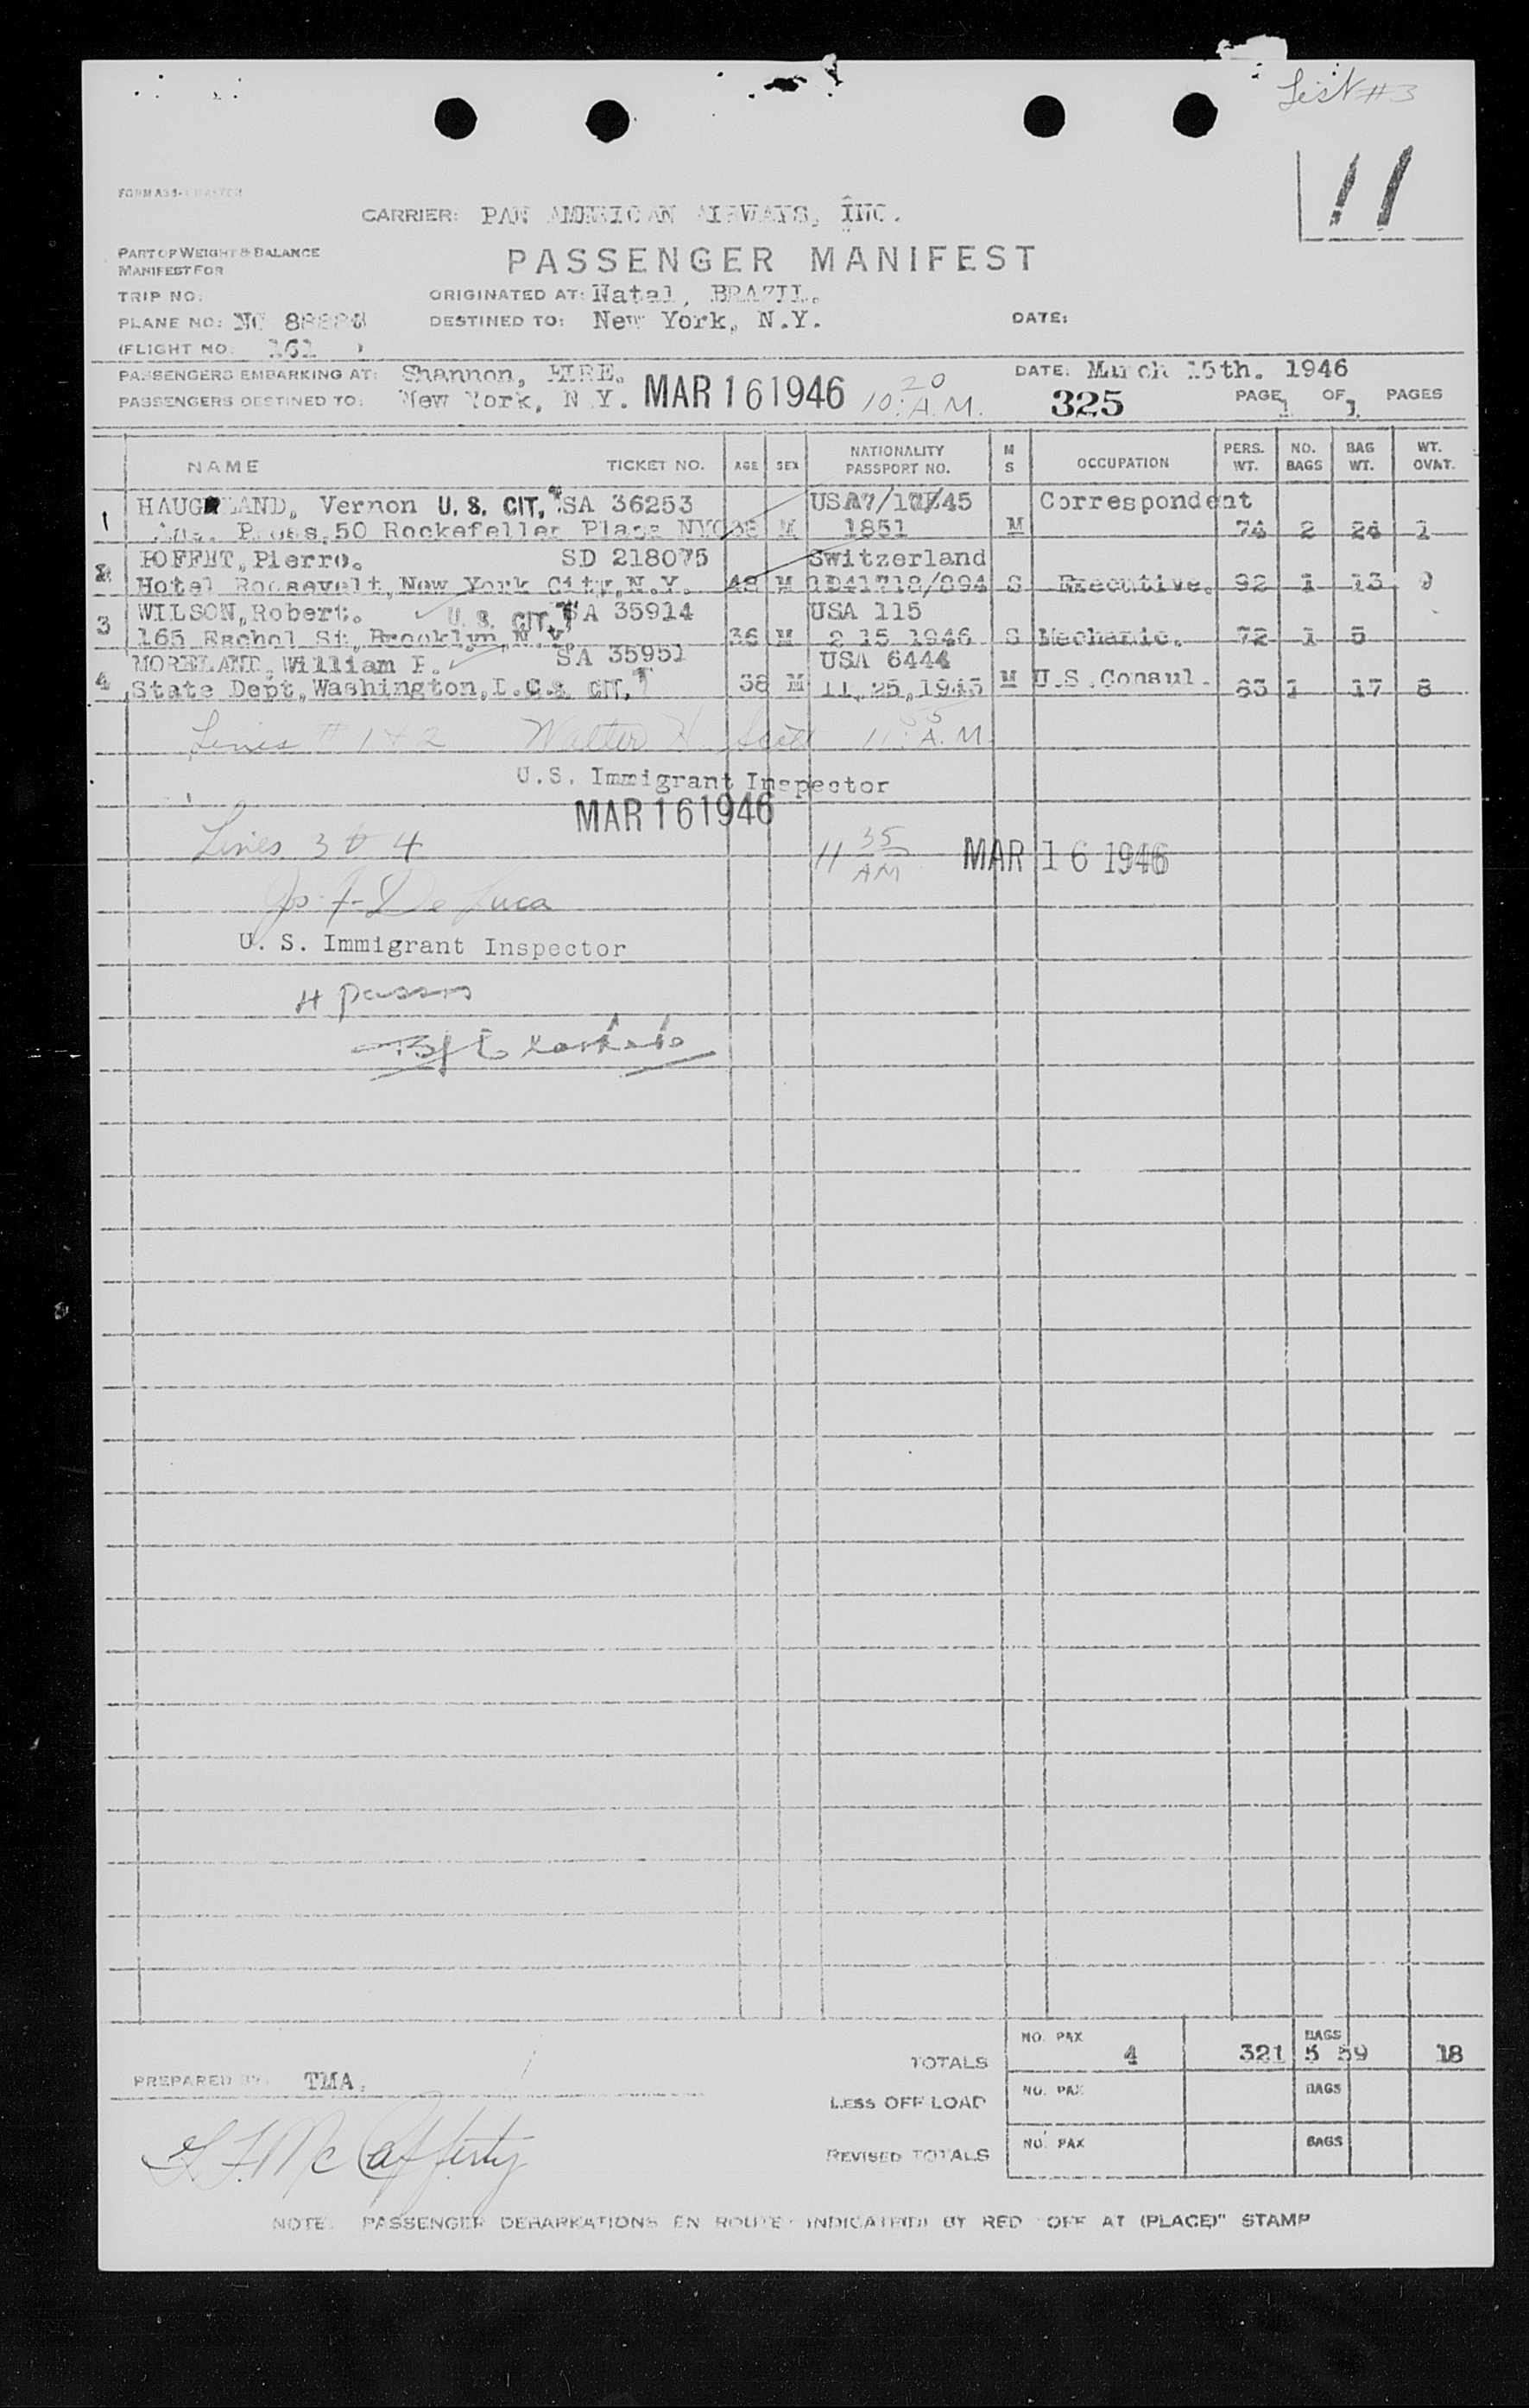 List #3
11
CARRIER: PAN AMERICAN AIRWAYS, INC.
PART OF WEIGHT & BALANCE
MANIFEST FOR
PASSENGER MANIFEST
TRIP NO:
ORIGINATED AT: Natal, BRAZIL.
PLANE NO: NC
DESTINED TO: New York, N.Y.
DATE:
(FLIGHT NO. 161 )
PASSENGERS EMBARKING AT: Shannon, EIRE.
DATE: March 15th. 1946
PASSENGERS DESTINED TO: New York, N.Y. MAR 16 1946 10:20 A.M. 325 PAGE 1 OF 1 PAGES
NAME TICKET NO. AGE SEX NATIONALITY PASSPORT NO. M S OCCUPATION PERS. WT. NO. BAGS BAG WT. WT. OVNT.
1 HAUGHLAND, Vernon U. S. CIT. SA 36253 USA Correspondent
Press, 50 Rockefeller Plaza NYC 38 M 1851 M 74 2 24 1
2 POFFET, Pierre. SD 218075 Switzerland
Hotel Roosevelt, New York City, N.Y. 48 M S Executive. 92 1 13 9
3 WILSON, Robert. U. S. CIT. SA 35914 USA 115
165 Eschol St, Brooklyn, N.Y. 36 M 2 15 1946 S Mechanic. 72 1 5
MORELAND, William P. SA 35951 USA 6444
4 State Dept, Washington, D.C. CIT. 38 M 11, 25, 1945 M U.S. Consul. 83 1 17 8
Lines # 1 & 2 Walter H. Scott 11:35 A.M.
U.S. Immigrant Inspector
MAR 16 1946
Lines 3 & 4 11 35 AM MAR 16 1946
Jos. F. De Luca
U. S. Immigrant Inspector
4 passrs
NO. PAX BAGS
TOTALS 4 321 5 59 18
PREPARED BY: TMA.
NO. PAX BAGS
LESS OFF LOAD
McCafferty
NO. PAX BAGS
REVISED TOTALS
NOTE: PASSENGER DEBARKATIONS EN ROUTE INDICATED BY RED "OFF AT (PLACE)" STAMP